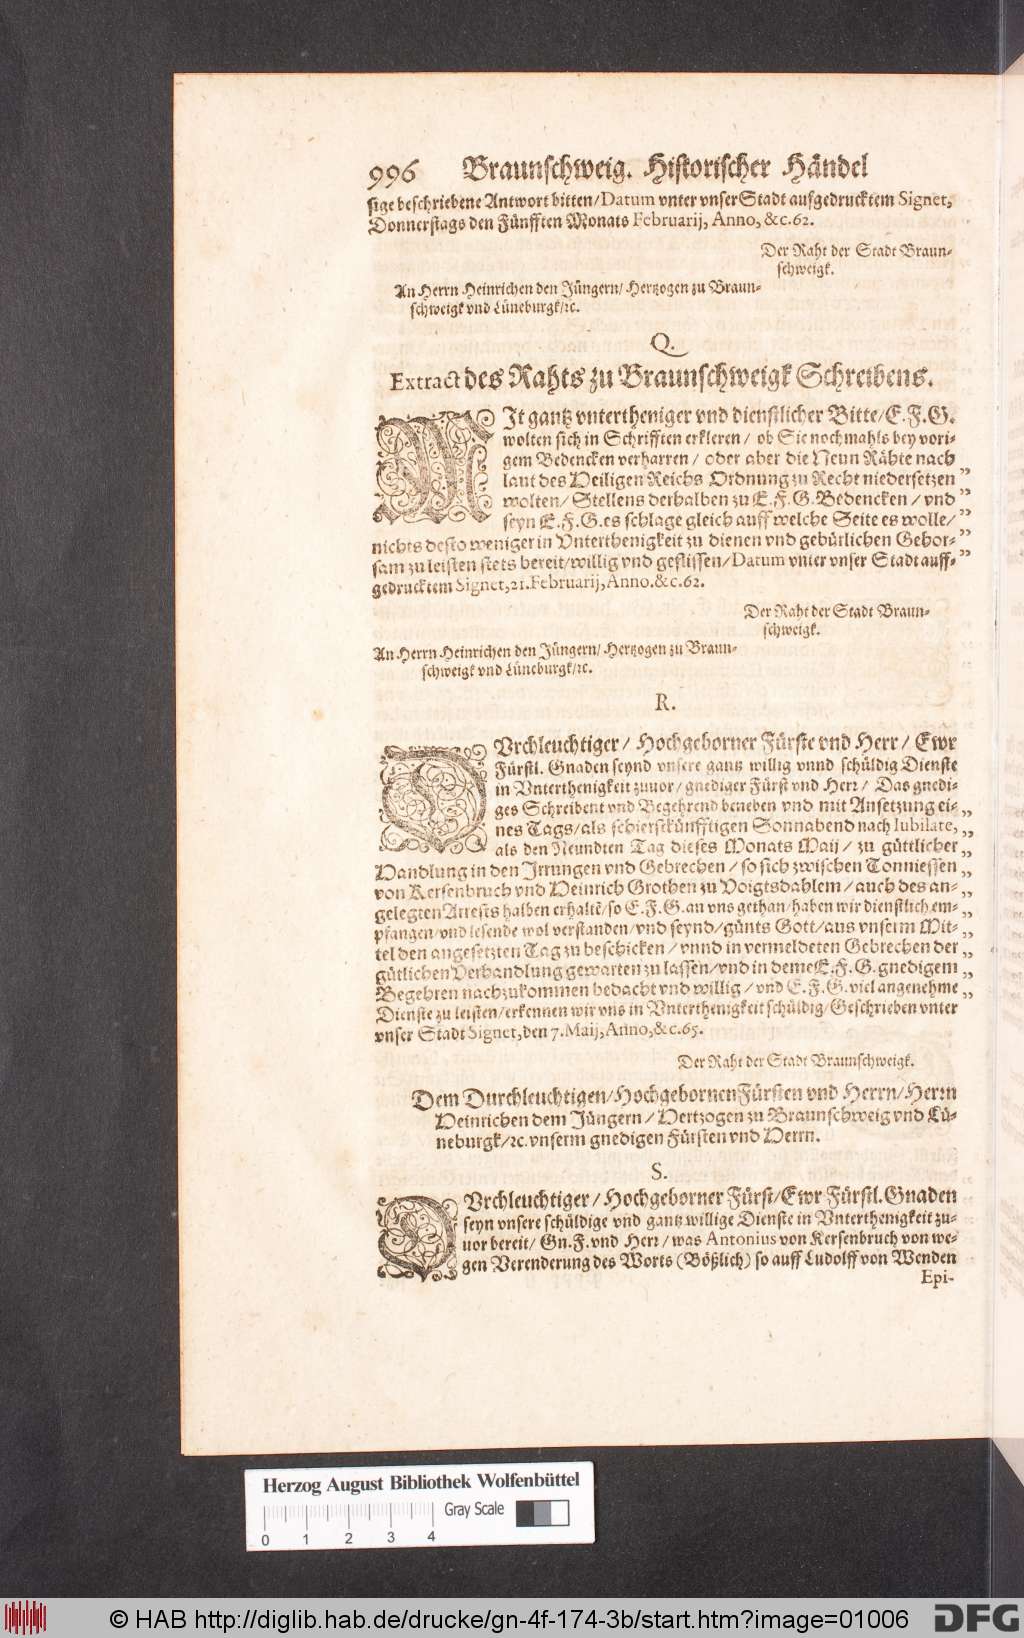 996 Braunschweig. Historischer Händel
sige beschriebene Antwort bitten/Datum vnter vnser Stadt aufgedrucktem Signet,
Donnerstags den Fünfften Monats Februarij, Anno, &c. 62.
Der Raht der Stadt Braun-
schweigk.
An Herrn Heinrichen den Jüngern/ Hertzogen zu Braun-
schweigk vnd Lüneburgk/ꝛc.
Q.
Extract des Rahts zu Braunschweigk Schreibens.
MIt gantz vntertheniger vnd dienstlicher Bitte/E.F.G.
wolten sich in Schrifften erkleren/ ob Sie nochmahls bey vori-
gem Bedencken verharren/ oder aber die Neun Rähte nach
laut des Heiligen Reichs Ordnung zu Recht niedersetzen „
wolten/ Stellens derhalben zu E.F.G. Bedencken/ vnd „
seyn E.F.G. es schlage gleich auff welche Seite es wolle/ „
nichts desto weniger in Vnterthenigkeit zu dienen vnd gebürlichen Gehor- „
sam zu leisten stets bereit/willig vnd geflissen/Datum vnter vnser Stadt auff-
gedrucktem Signet, 21. Februarij, Anno. &c. 62.
Der Raht der Stadt Braun-
schweigk.
An Herrn Heinrichen den Jüngern/ Hertzogen zu Braun-
schweigk vnd Lüneburgk/ꝛc.
R.
DVrchleuchtiger/ Hochgeborner Fürste vnd Herr/ Ewr
Fürstl. Gnaden seynd vnsere gantz willig vnnd schüldig Dienste
in Vnterthenigkeit zuuor/ gnediger Fürst vnd Herr/ Das gnedi-
ges Schreibent vnd Begehrend beneben vnd mit Ansetzung ei- „
nes Tags/als schierstkünfftigen Sonnabend nach Iubilate, „
als den Neundten Tag dieses Monats Maij/ zu güttlicher „
Handlung in den Irrungen vnd Gebrechen/ so sich zwischen Tonniessen „
von Kersenbruch vnd Heinrich Grothen zu Voigtsdahlem/ auch des an- „
gelegten Arrests halben erhaltē/so E.F.G. an vns gethan/haben wir dienstlich em- „
pfangen/vnd lesende wol verstanden/vnd seynd/günts Gott/aus vnserm Mit- „
tel den angesetzten Tag zu beschicken/ vnnd in vermeldeten Gebrechen der „
gütlichen Verhandlung gewarten zu lassen/vnd in deme E.F.G. gnedigem „
Begehren nachzukommen bedacht vnd willig/ vnd E.F.G. viel angenehme „
Dienste zu leisten/erkennen wir vns in Vnterthenigkeit schüldig/Geschrieben vnter
vnser Stadt Signet, den 7. Maij, Anno, &c. 65.
Der Raht der Stadt Braunschweigk.
Dem Durchleuchtigen/Hochgebornen Fürsten vnd Herrn/Herrn
Heinrichen dem Jüngern/ Hertzogen zu Braunschweig vnd Lü-
neburgk/ꝛc. vnserm gnedigen Fürsten vnd Herrn.
S.
DVrchleuchtiger/ Hochgeborner Fürst/Ewr Fürstl. Gnaden
seyn vnsere schüldige vnd gantz willige Dienste in Vnterthenigkeit zu-
uor bereit/ Gn. F. vnd Herr/ was Antonius von Kersenbruch von we-
gen Verenderung des Worts (Bößlich) so auff Ludolff von Wenden
Epi-
Herzog August Bibliothek Wolfenbüttel
Gray Scale
0 1 2 3 4
© HAB http://diglib.hab.de/drucke/gn-4f-174-3b/start.htm?image=01006 DFG